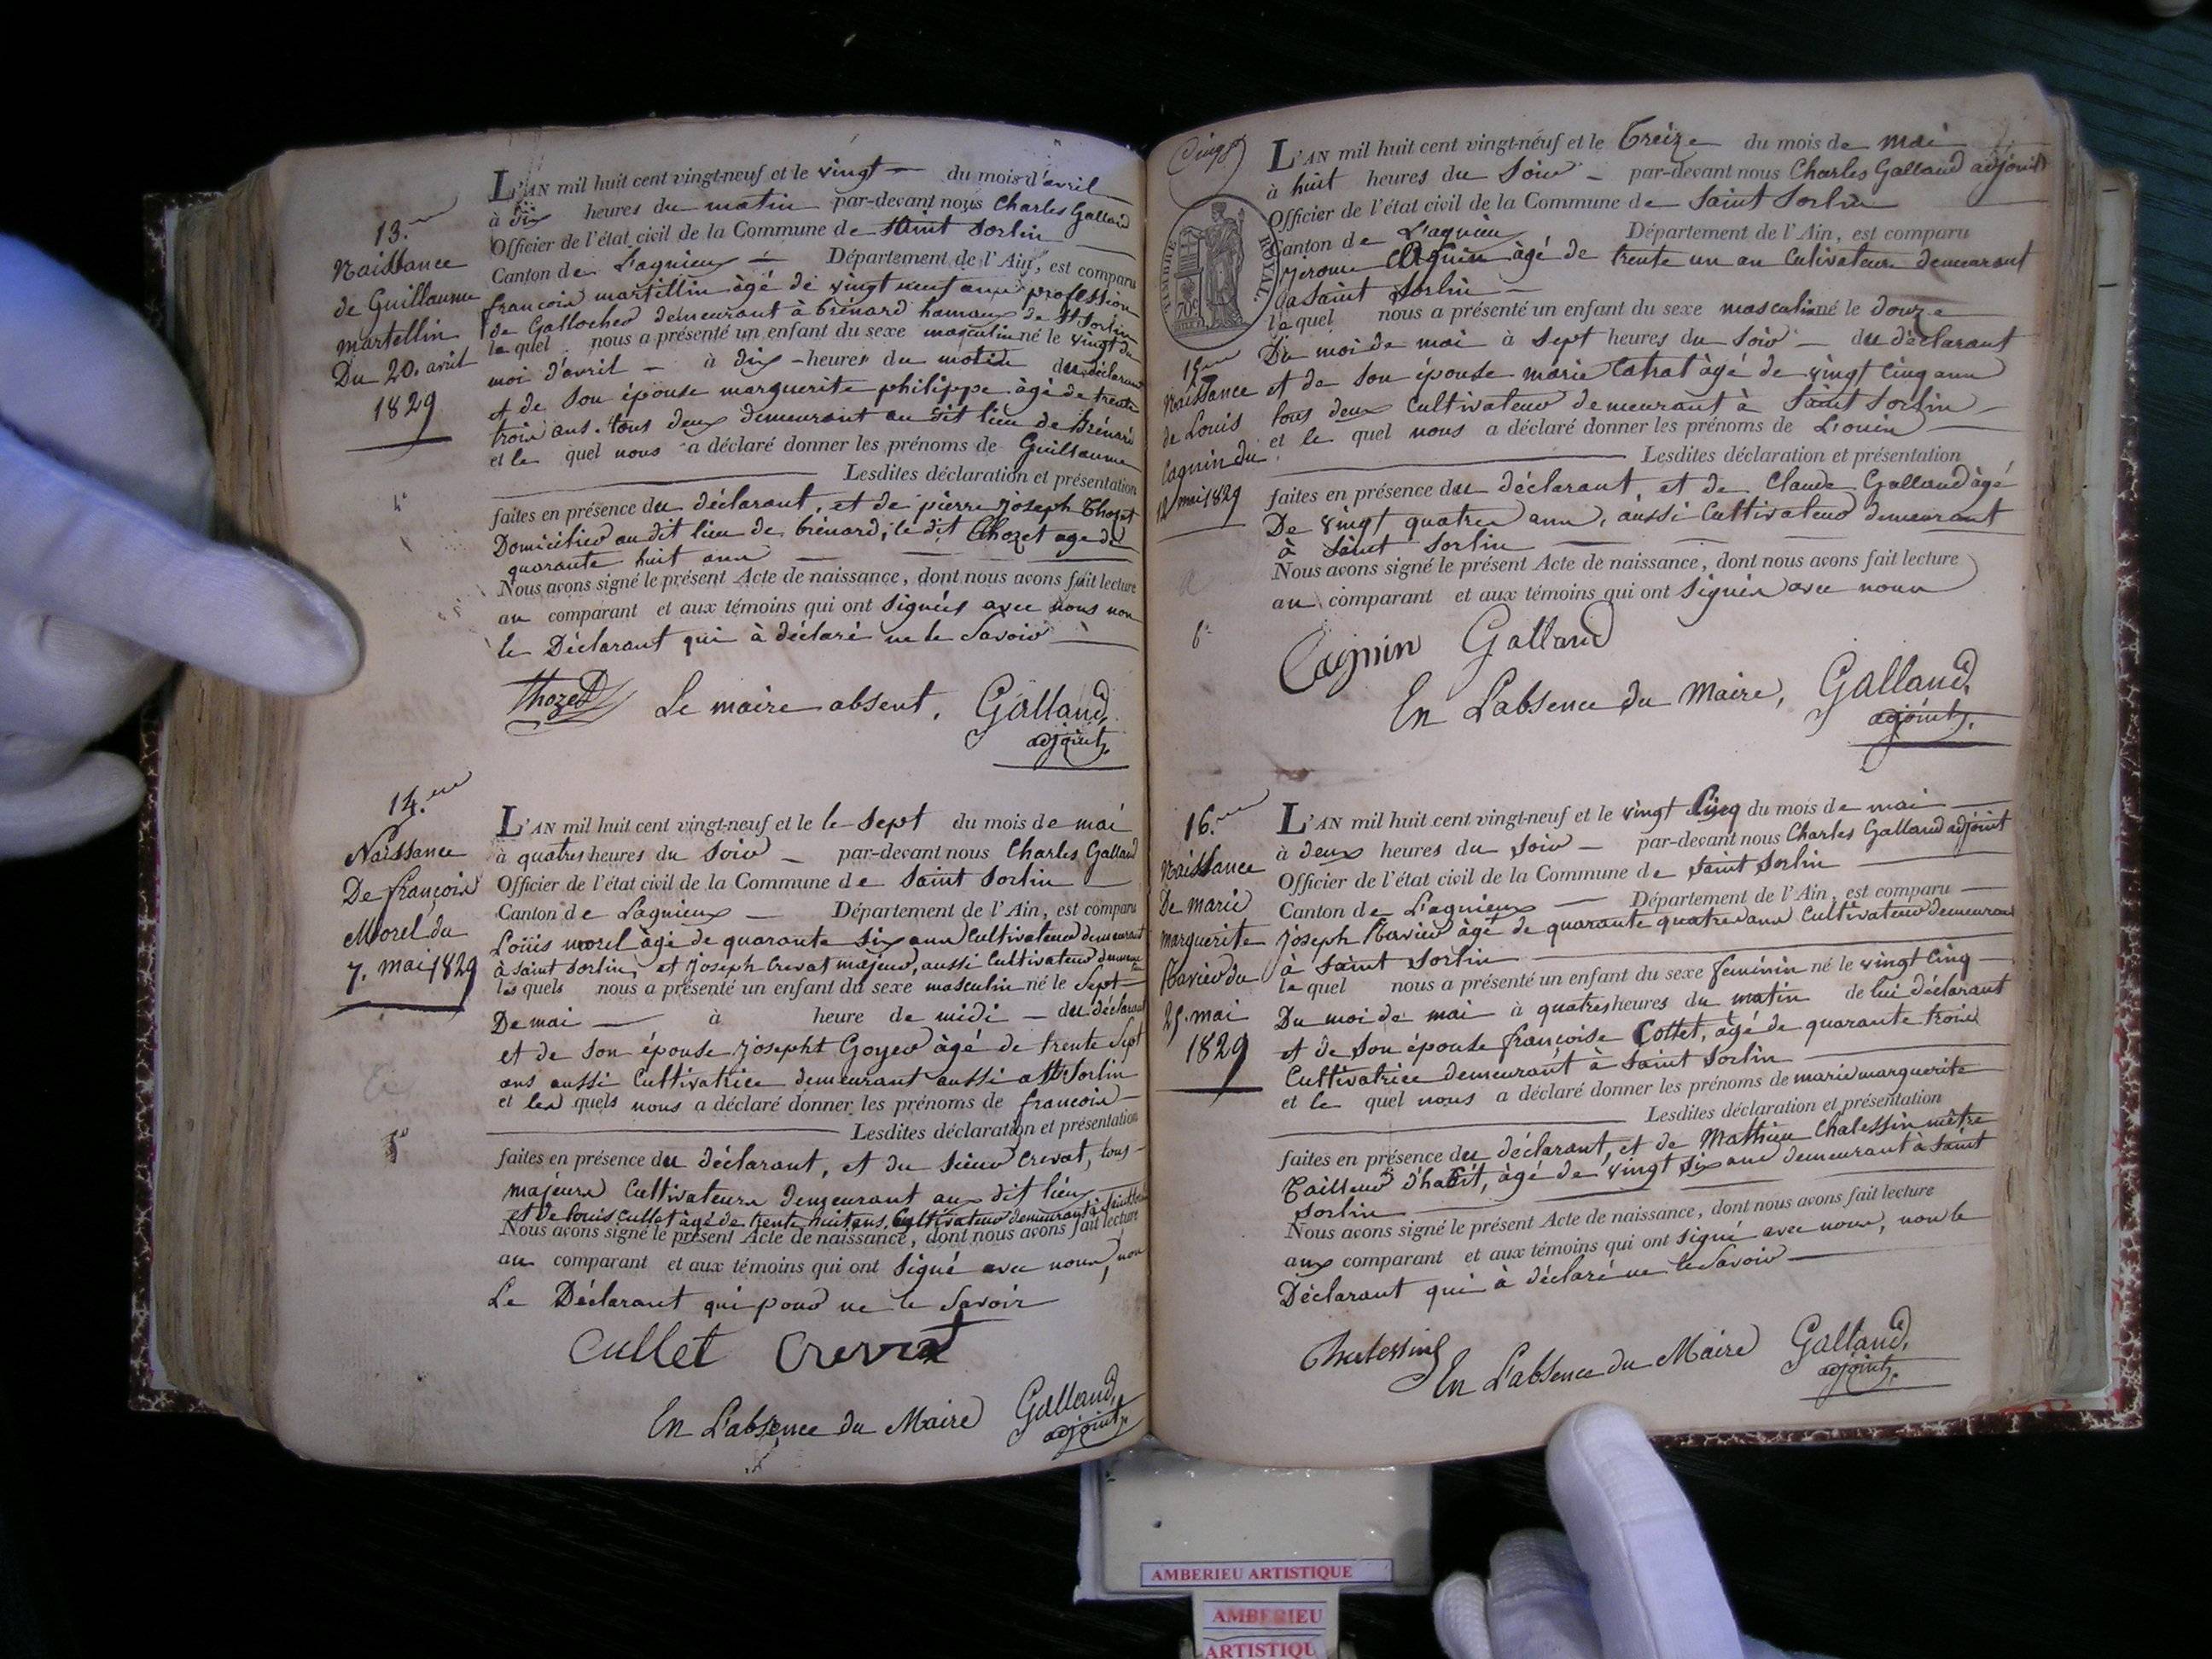 13.me
Naissance
de Guillaume
martellin
Du 20. avril
1829
L'AN mil huit cent vingt-neuf et le vingt du mois d'avril
à dix heures du matin par-devant nous Charles Galland
Officier de l'état civil de la Commune de Saint Sorlin
Canton de Lagnieux Département de l'Ain, est comparu
françois martellin âgé de vingt neuf ans profession
de Gallocher demeurant à brénard hamaux de St Sorlin
le quel nous a présenté un enfant du sexe masculin né le vingt du
moi d'avril à dix heures du matin du déclarant
et de son épouse marguerite philippe âgé de trente
trois ans. tous deux demeurant au dit lieu de brénard
et le quel nous a déclaré donner les prénoms de Guillaume
Lesdites déclaration et présentation
faites en présence du déclarant, et de pierre joseph Thozet
Domicilier au dit lieu de brénard, le dit Thozet age de
quarante huit ans
Nous avons signé le présent Acte de naissance, dont nous avons fait lecture
au comparant et aux témoins qui ont signées avec nous non
le Déclarant qui à déclaré ne le Savoir
Thozet Le maire absent, Galland,
adjoint,
14.me
Naissance
De françois
Morel du
7. mai 1829
L'AN mil huit cent vingt-neuf et le le Sept du mois de mai
à quatres heures du Soir par-devant nous Charles Galland
Officier de l'état civil de la Commune de Saint Sorlin
Canton de Lagnieux Département de l'Ain, est comparu
Loüis morel âgé de quarante six ans Cultivateur demeurant
à Saint Sorlin, et joseph Crevat majeur, aussi Cultivateur
les quels nous a présenté un enfant du sexe masculin né le Sept
De mai à heure de midi du déclarant
et de Son épouse josepht Goyer âgé de trente Sept
ans aussi Cultivatrice demeurant aussi a St Sorlin
et les quels nous a déclaré donner les prénoms de françois
Lesdites déclaration et présentation
faites en présence du déclarant, et du Sieur Crevat, tous
majeurs Cultivateurs demeurant aux dit lieu
et de louis Cullet âgé de trente huit ans, Cultivateur demeurant à
Nous avons signé le présent Acte de naissance, dont nous avons fait lecture
au comparant et aux témoins qui ont Signé avec nous, non
Le Déclarant qui ne le Savoir
Cullet Crevat
En L'absence du Maire Galland,
adjoint,
TIMBRE ROYAL
70c
15me
Naissance
de Louis
Cagnin du
12 mai 1829
L'AN mil huit cent vingt-neuf et le Treize du mois de mai
à huit heures du Soir par-devant nous Charles Galland adjoint
Officier de l'état civil de la Commune de Saint Sorlin
Canton de Lagnieu Département de l'Ain, est comparu
Jérome Cagnin âgé de trente un an Cultivateur demeurant
a Saint Sorlin
le quel nous a présenté un enfant du sexe masculin né le douze
Du moi de mai à Sept heures du Soir du déclarant
et de Son épouse marie Catrat âgé de vingt Cinq ans
tous deux Cultivateur demeurant à Saint Sorlin
et le quel nous a déclaré donner les prénoms de Louis
Lesdites déclaration et présentation
faites en présence du déclarant, et de Claude Galland âgé
De vingt quatre ans, aussi Cultivateur demeurant
à Saint Sorlin
Nous avons signé le présent Acte de naissance, dont nous avons fait lecture
au comparant et aux témoins qui ont Signés avec nous
Cagnin Galland
En L'absence du Maire, Galland,
adjoint,
16.me
Naissance
De marie
marguerite
du
25. mai
1829
L'AN mil huit cent vingt-neuf et le vingt Cinq du mois de mai
à deux heures du Soir par-devant nous Charles Galland adjoint
Officier de l'état civil de la Commune de Saint Sorlin
Canton de Lagnieux Département de l'Ain, est comparu
joseph âgé de quarante quatre ans Cultivateur demeurant
à Saint Sorlin
le quel nous a présenté un enfant du sexe féminin né le vingt Cinq
Du moi de mai à quatres heures du matin de lui déclarant
et de Son épouse françoise Cottet, âgé de quarante trois
Cultivatrice demeurant à Saint Sorlin
et le quel nous a déclaré donner les prénoms de marie marguerite
Lesdites déclaration et présentation
faites en présence du déclarant, et de Mathieu Chalessin mêtre
Tailleur d'habit, âgé de vingt six ans demeurant à Saint
Sorlin
Nous avons signé le présent Acte de naissance, dont nous avons fait lecture
aux comparant et aux témoins qui ont signé avec nous, non le
Déclarant qui à déclaré ne le Savoir
Chalessin En L'absence du Maire Galland,
adjoint,
AMBERIEU ARTISTIQUE
AMBERIEU
ARTISTIQU